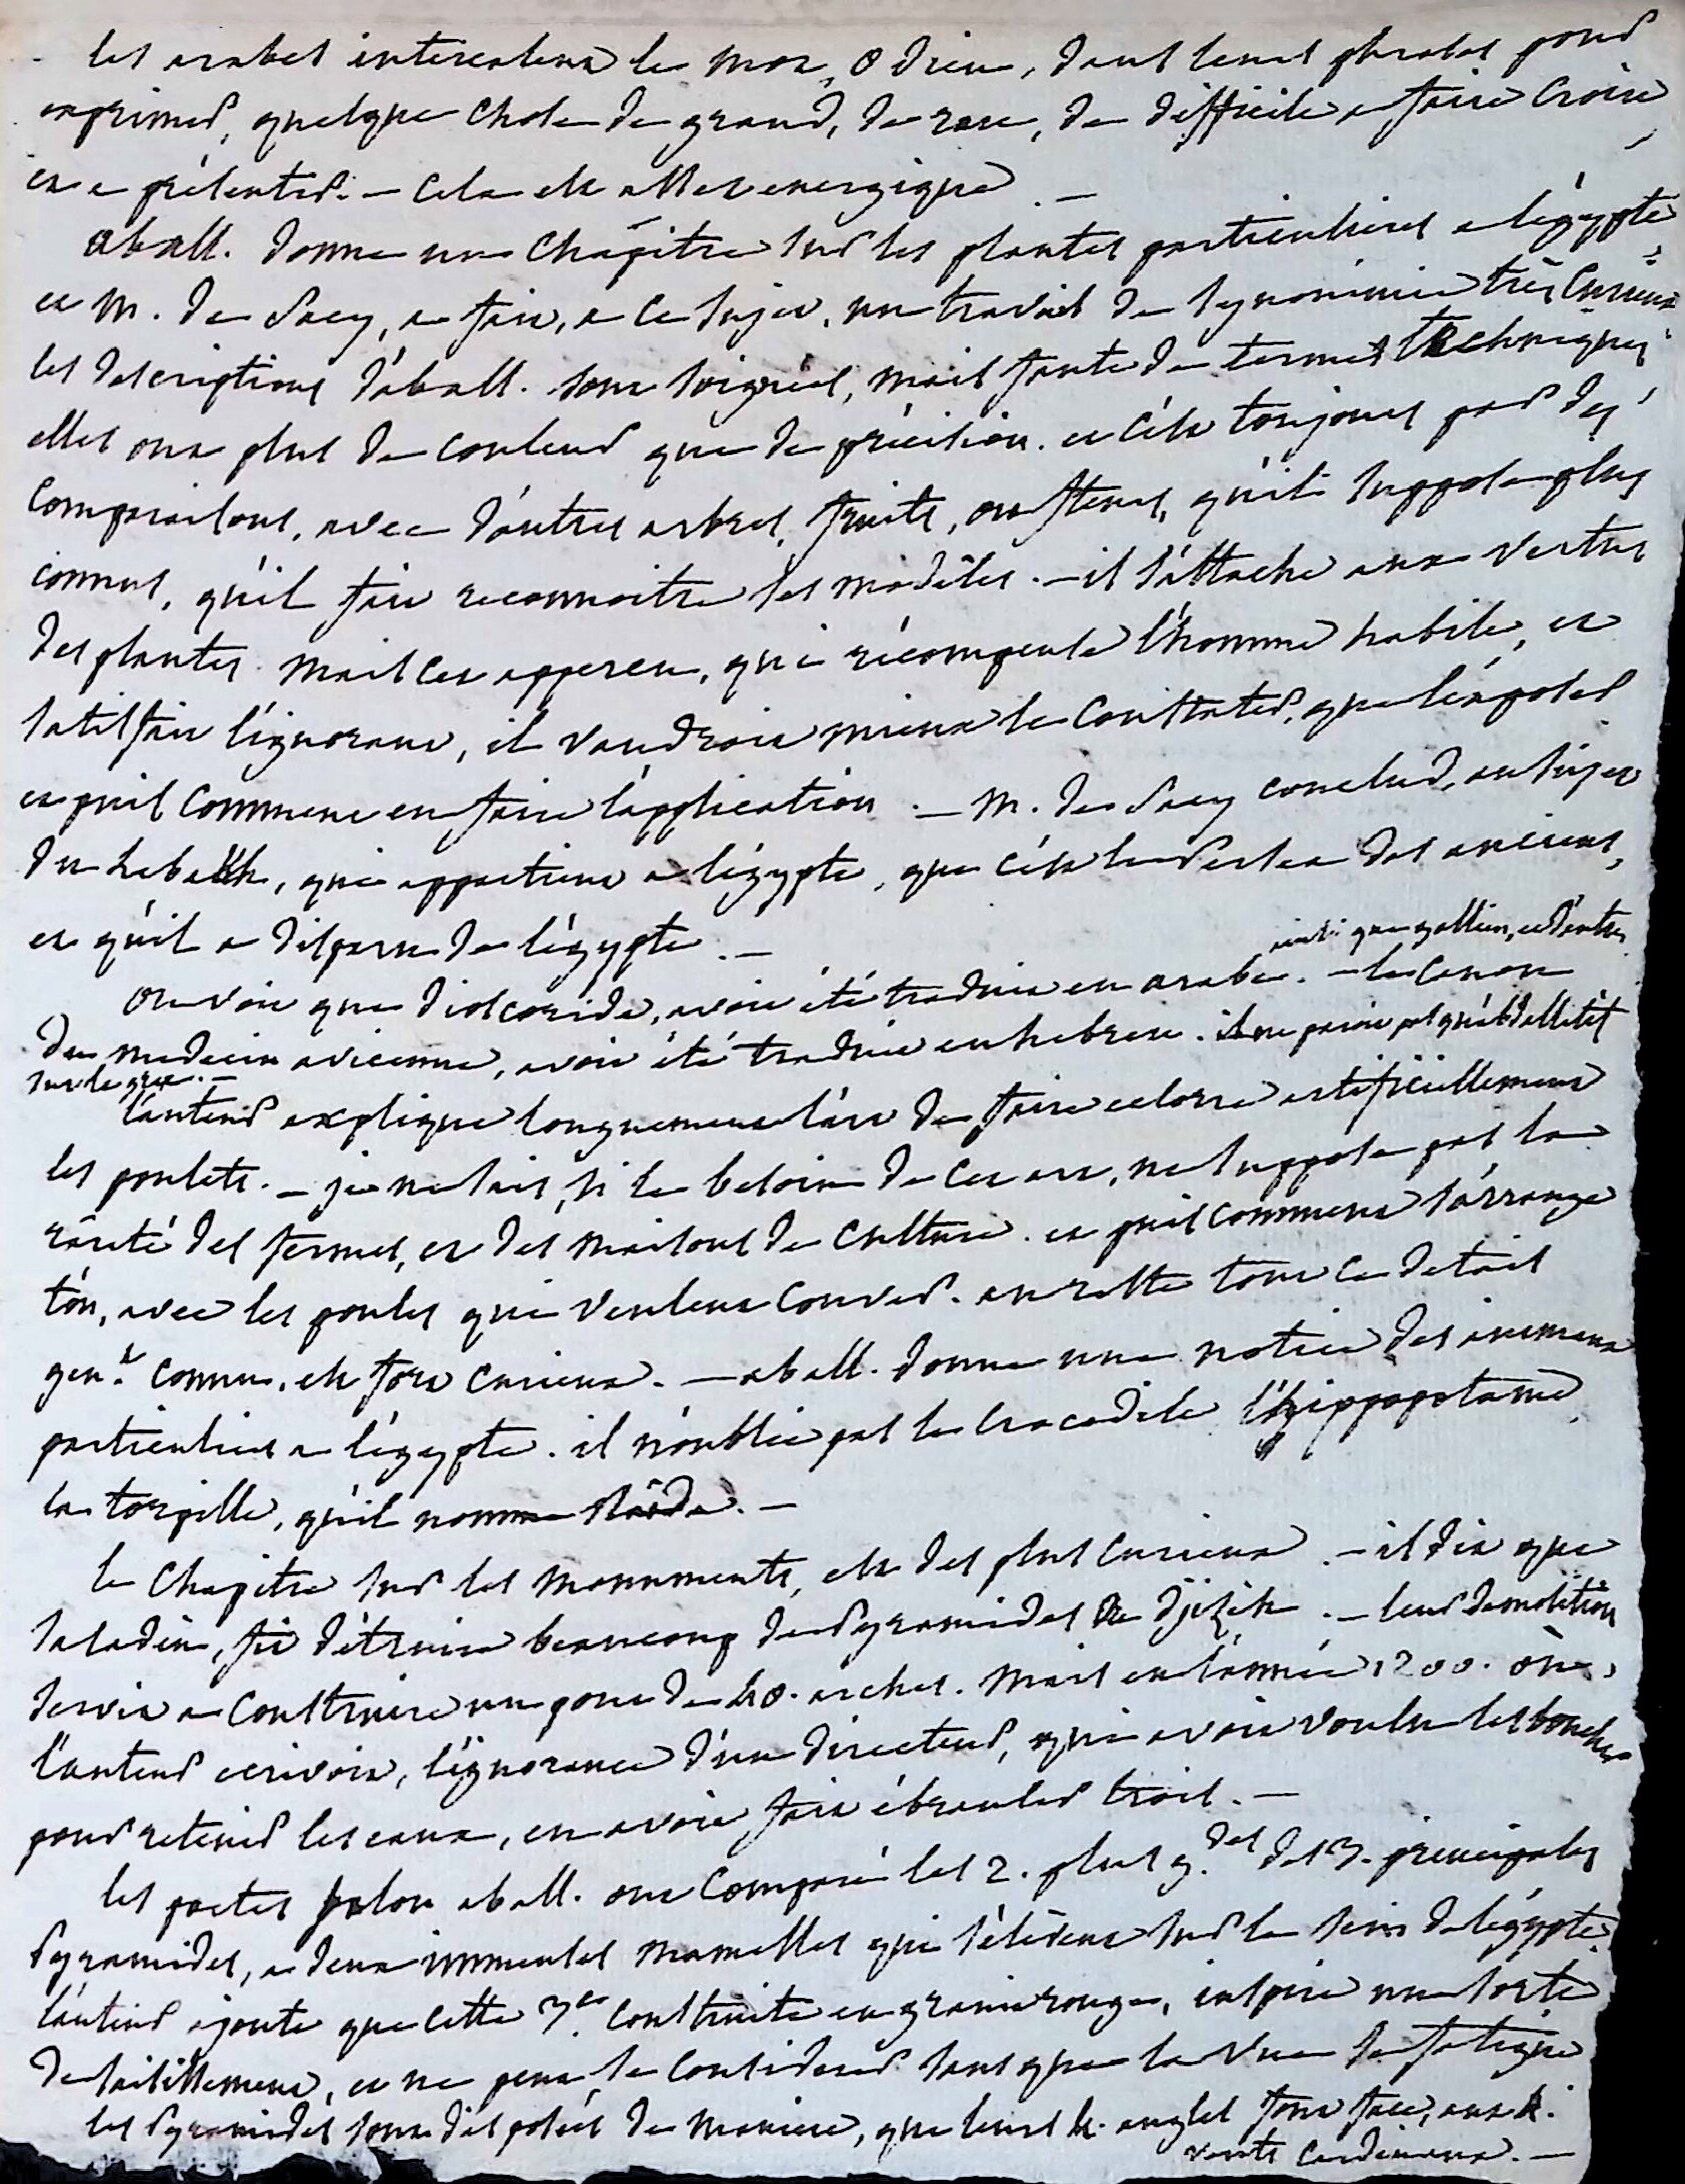 les arabes intercalent le mot, o dieu, dans leurs phrases pour
exprimer, quelque chose de grand, de rare, de difficile a faire croire
et a présenter. — cela est assez energique —
aball. donne un chapitre sur les plantes particulieres a légypte
et M. de Sacy, a fait, a ce sujet, un travail de synonimie très curieux
les descriptions d'aball. sont soignées, mais faute de termes techniques
elles ont plus de couleur que de précision. et c'est toujours par des
comparaisons, avec d'autres arbres, fruits, ou fleurs, qu'il suppose plus
connus, qu'il fait reconnoitre ses modèles. — il s'attache aux vertus
des plantes. mais cet apperçu, qui récompense l'homme habile, et
satisfait l'ignorant, il vaudroit mieux le constater, que l'exposer
et puis comment en faire l'application. — M. de Sacy conclud, au sujet
du lebakh, qui appartient a légypte, que c'est le persea des anciens,
et qu'il a disparu de l'égypte. —
on voit que dioscoride, avoit été traduit en arabe. ainsi que gallien, et d'autres — le canon
du medecin avicenne, avoit été traduit en hebreu. il ne paroit pas qu'abdall. etât
sur le grec. —
l'auteur explique longuement l'art de faire eclorre artificiellement
les poulets. — je ne sais, si le besoin de cet art, ne suppose pas la
rareté des fermes, et des maisons de culture. et puis comment s'arrange
t'on, avec les poules qui veulent couver. au reste tout ce detail
gen.t connu, est fort curieux. — aball. donne une notice des animaux
particuliers a l'égypte. il n'oublie pas le crocodile l'hippopotame,
la torpille, qu'il nomme räâda. —
le chapitre sur les monuments, est des plus curieux. — il dit que
saladin, fit détruire beaucoup de pyramides de djizéh. — leur demolition
servit a construire un pont de 40. arches. mais en l'année 1200. où
l'auteur ecrivoit, l'ignorance d'un directeur, qui avoit voulu les boucher
pour retenir les eaux, en avoit fait ébranler trois. —
les poetes selon aball. ont comparé les 2. plus g.des des 3. principales
pyramides, a deux immenses mamelles qui s'élèvent sur le sein de l'égypte
l'auteur ajoute que cette 3.e construite en granit rouge, inspire une sorte
de saisissement, et ne peut se considerer sans que la vue se fatigue
les pyramides sont disposées de maniere, que leurs 4. angles font face, aux 4.
vents cardinaux. —